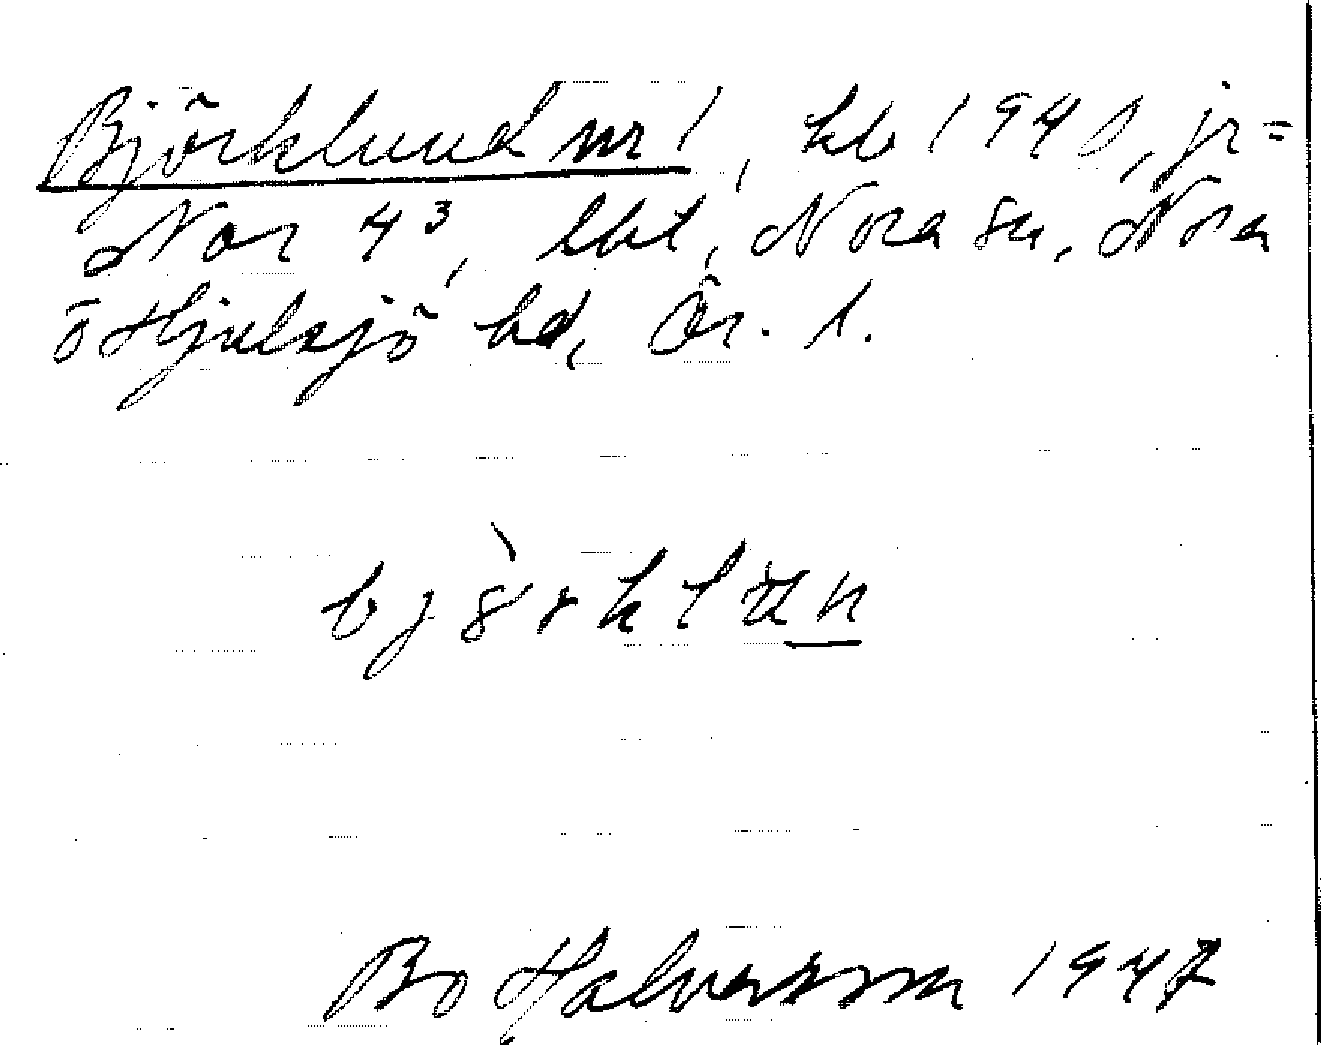 Björklund nr 1, kb 1940, jr=
Nor 43, lbt, Nora sn, Nora
o Hjulsjö hd, Ör. l.
bjö̀rklun
Bo Halvarsson 1947